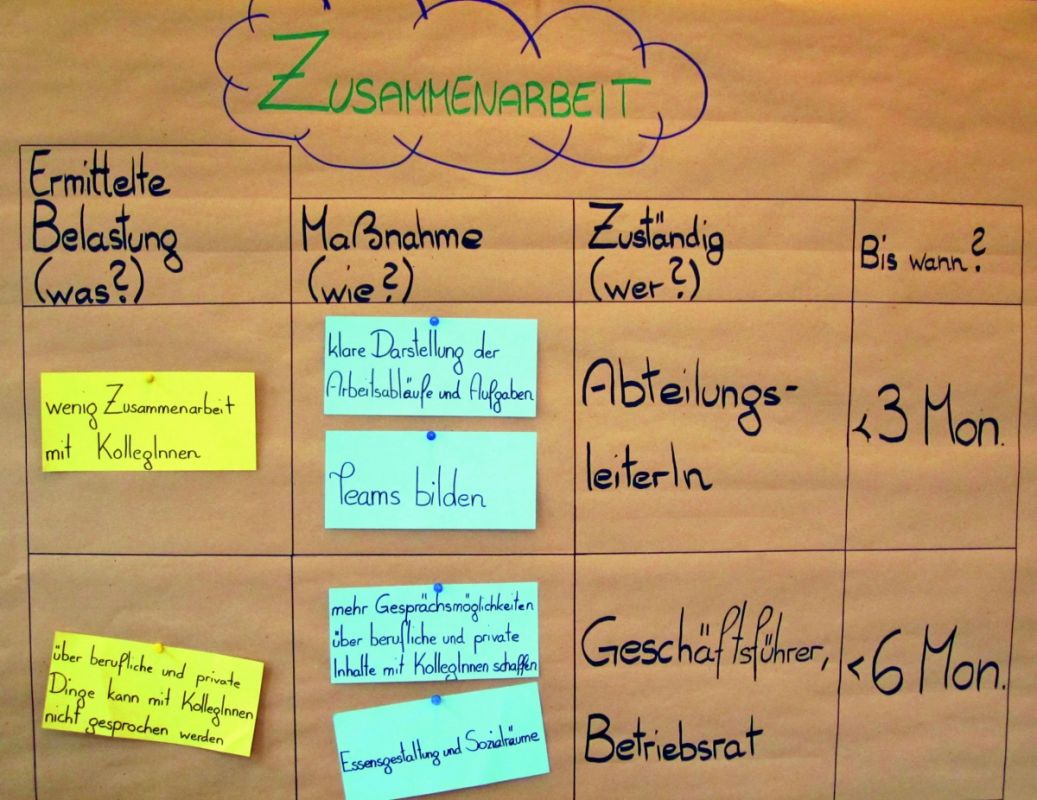 ZUSAMMENARBEIT
Ermittelte
Belastung
(was?)
Maßnahme
(wie?)
Zuständig
(wer?)
Bis wann?
wenig Zusammenarbeit
mit KollegInnen
klare Darstellung der
Arbeitsabläufe und Aufgaben
Teams bilden
Abteilungs-
leiterIn
<3 Mon.
über berufliche und private
Dinge kann mit KollegInnen
nicht gesprochen werden
mehr Gesprächsmöglichkeiten
über berufliche und private
Inhalte mit KollegInnen schaffen
Essensgestaltung und Sozialräume
Geschäftsführer,
Betriebsrat
<6 Mon.